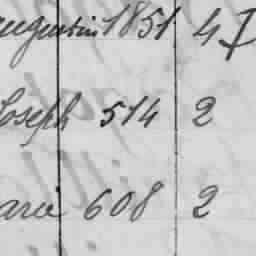 Augustin 1851 47
Joseph 514 2
arie 608 2